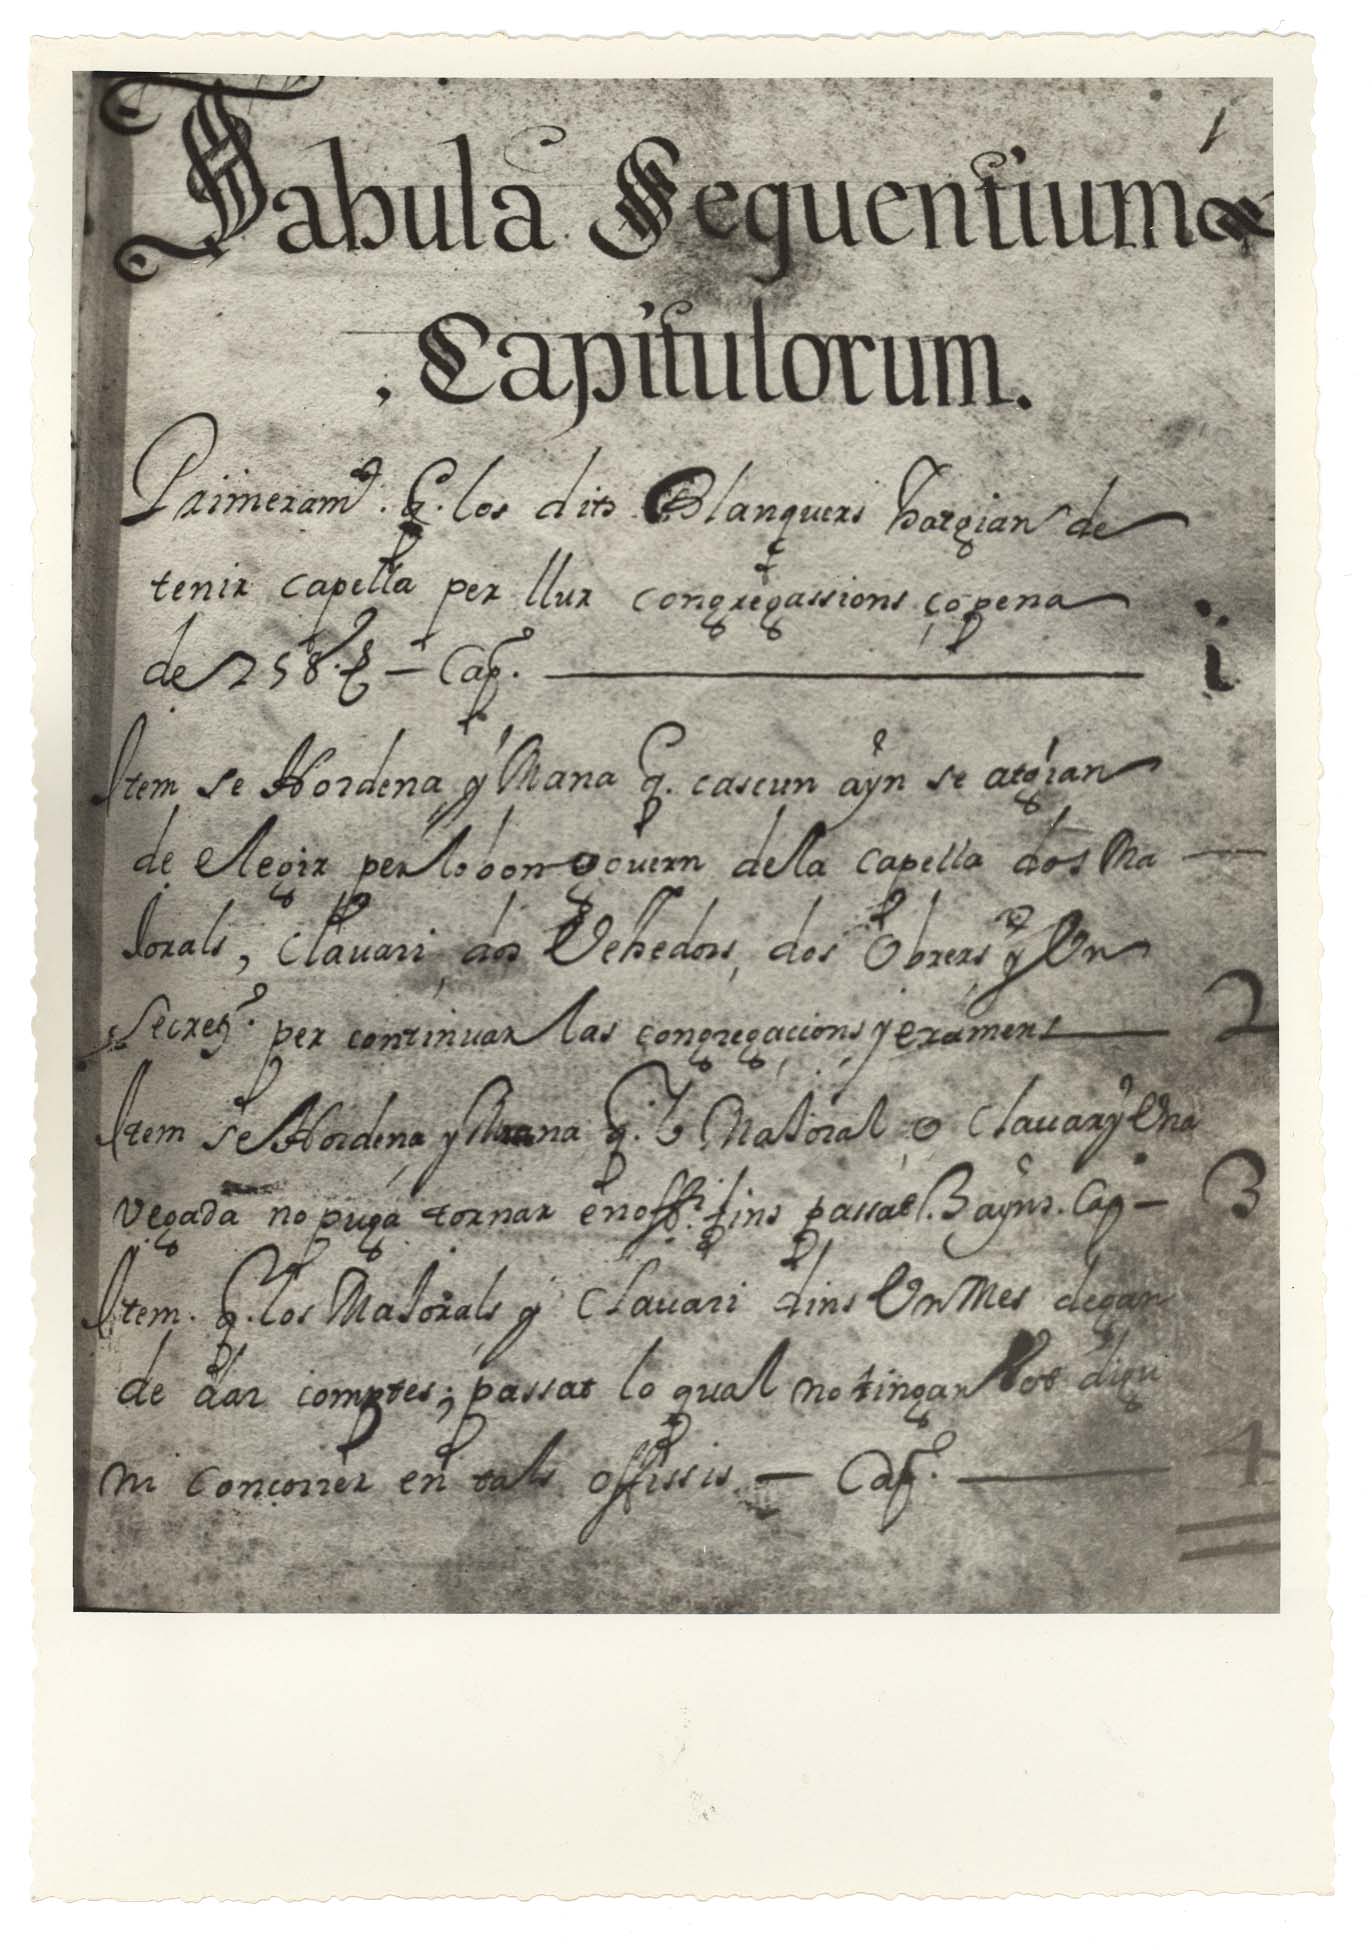 1
Tabula Sequentium
Capitulorum.
Primeramt. q. los dits Blanquers hatgian de
tenir capella per llur congregassions, ço pena
de 25 ₤ — Cap. i
Item se Hordena y Mana q. cascun ayn se atgian
de elegir per lo bon govern de la capella dos Ma
Jorals, Clavari, dos Vehedors, dos Obrers y Un
Secret. per continuar las congregacions y examens 2
Item se Hordena y Mana q. lo Majoral o Clavary Una
vegada no puga tornar en offi. fins passat. 3 ayns. Cap — 3
Item. q. los Majorals y Clavari dins Un Mes degan
de dar comptes; passat lo qual no tingan Vot digu
ni concorrer en tals offissis — Cap. 4